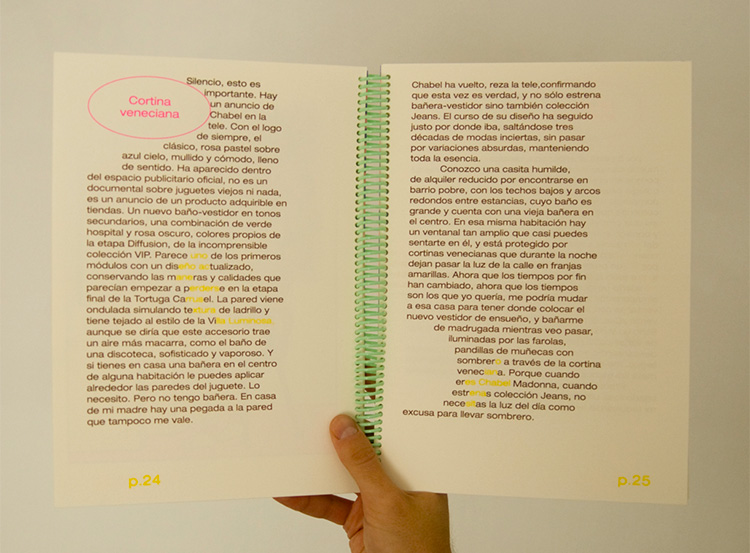 Cortina
veneciana
Silencio, esto es
importante. Hay
un anuncio de
Chabel en la
tele. Con el logo
de siempre, el
clásico, rosa pastel sobre
azul cielo, mullido y cómodo, lleno
de sentido. Ha aparecido dentro
del espacio publicitario oficial, no es un
documental sobre juguetes viejos ni nada,
es un anuncio de un producto adquirible en
tiendas. Un nuevo baño-vestidor en tonos
secundarios, una combinación de verde
hospital y rosa oscuro, colores propios de
la etapa Diffusion, de la incomprensible
colección VIP. Parece uno de los primeros
módulos con un diseño actualizado,
conservando las maneras y calidades que
parecían empezar a perderse en la etapa
final de la Tortuga Carrusel. La pared viene
ondulada simulando textura de ladrillo y
tiene tejado al estilo de la Villa Luminosa
aunque se diría que este accesorio trae
un aire más macarra, como el baño de
una discoteca, sofisticado y vaporoso. Y
si tienes en casa una bañera en el centro
de alguna habitación le puedes aplicar
alrededor las paredes del juguete. Lo
necesito. Pero no tengo bañera. En casa
de mi madre hay una pegada a la pared
que tampoco me vale.
p.24
Chabel ha vuelto, reza la tele,confirmando
que esta vez es verdad, y no sólo estrena
bañera-vestidor sino también colección
Jeans. El curso de su diseño ha seguido
justo por donde iba, saltándose tres
décadas de modas inciertas, sin pasar
por variaciones absurdas, manteniendo
toda la esencia.
Conozco una casita humilde,
de alquiler reducido por encontrarse en
barrio pobre, con los techos bajos y arcos
redondos entre estancias, cuyo baño es
grande y cuenta con una vieja bañera en
el centro. En esa misma habitación hay
un ventanal tan amplio que casi puedes
sentarte en él, y está protegido por
cortinas venecianas que durante la noche
dejan pasar la luz de la calle en franjas
amarillas. Ahora que los tiempos por fin
han cambiado, ahora que los tiempos
son los que yo quería, me podría mudar
a esa casa para tener donde colocar el
nuevo vestidor de ensueño, y bañarme
de madrugada mientras veo pasar,
iluminadas por las farolas,
pandillas de muñecas con
sombrero a través de la cortina
veneciana. Porque cuando
eres Chabel Madonna, cuando
estrenas colección Jeans, no
necesitas la luz del día como
excusa para llevar sombrero.
p.25